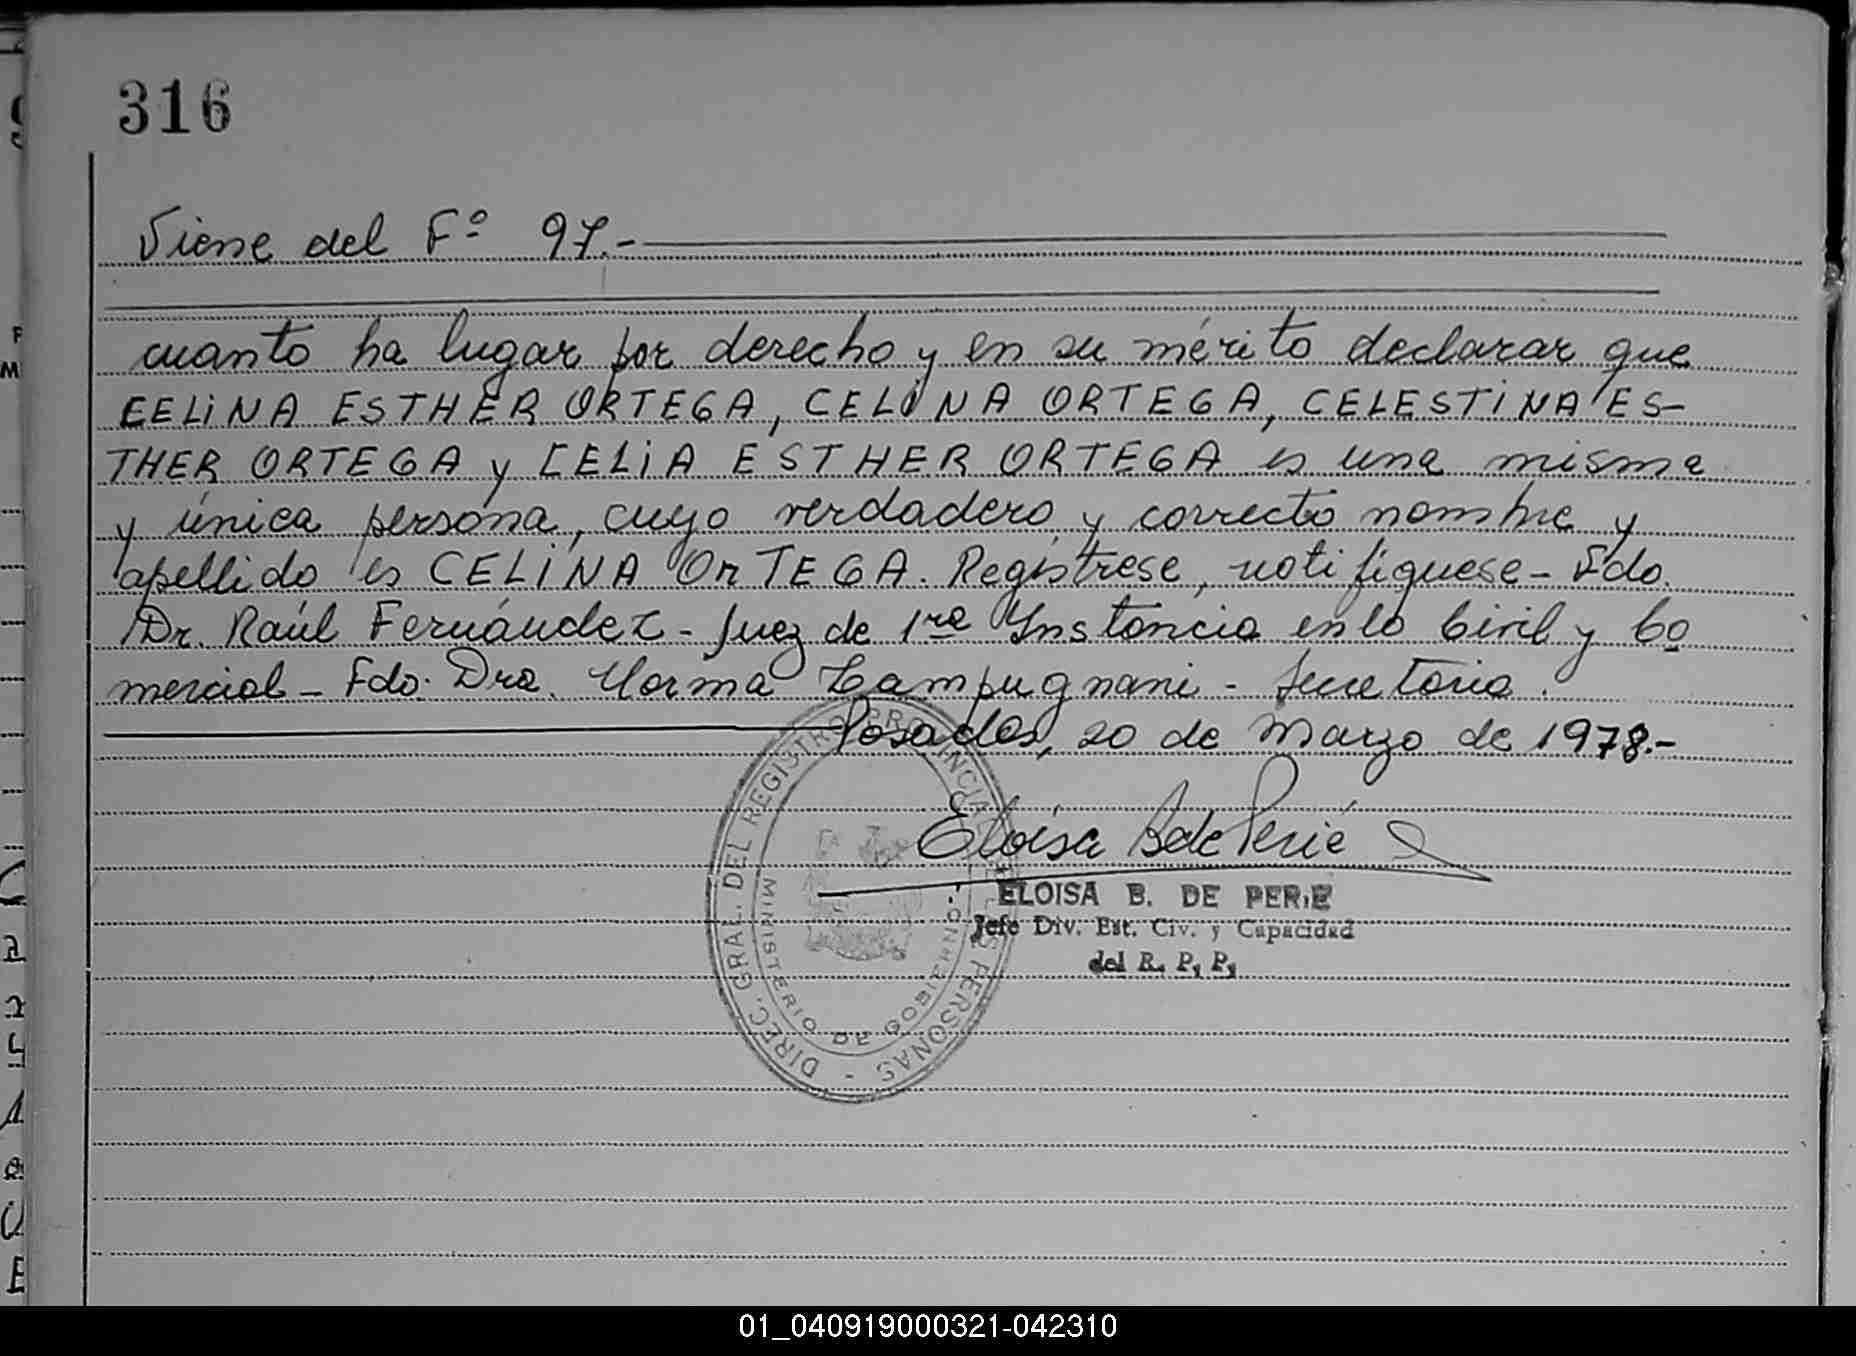 316
Viene del Fº 97.-
cuanto ha lugar por derecho y en su mérito declarar que
CELINA ESTHER ORTEGA, CELINA ORTEGA, CELESTINA ES-
THER ORTEGA y CELIA ESTHER ORTEGA es una misma
y única persona, cuyo verdadero y correcto nombre y
apellido es CELINA ORTEGA. Registrese, notifíquese - Fdo.
Dr. Raúl Fernández - Juez de 1ra Instancia en lo Civil y Co
mercial - Fdo. Dra. Norma Zampugnani - Secretaria.
Posadas, 20 de Marzo de 1978.-
Eloísa B de Perié
ELOISA B. DE PERIE
Jefe Div. Est. Civ. y Capacidad
del R. P. P.
DIREC. GRAL. DEL REGISTRO PROVINCIAL DE LAS PERSONAS -
MINISTERIO DE GOBIERNO
01_040919000321-042310